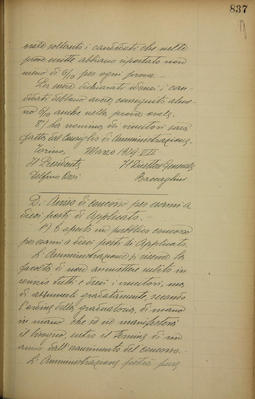 837
orale soltanto i candidati che nelle
prove scritte abbiano riportato non
meno di 6/10 per ogni prova.
Per essere dichiarati idonei i can-
didati debbono aver conseguito alme-
no 6/10 anche nella prova orale.
8°/ La nomina dei vincitori sarà
fatta dal Consiglio di Amministrazione.
Torino, Marzo 1929 VII
Il Presidente Il Direttore Generale
D. Avviso di concorso per esami a
dieci posti di Applicato.
1°/ È aperto un pubblico concorso
per esami a dieci posti di Applicato.
L'Amministrazione si riserva la
facoltà di non ammettere subito in
servizio tutti e dieci i vincitori, ma
di assumerli gradatamente, secondo
l'ordine della graduatoria, di mano
in mano che se ne manifesterà
il bisogno, entro il termine di un
anno dall'esaurimento del concorso.
L'Amministrazione potrà pure